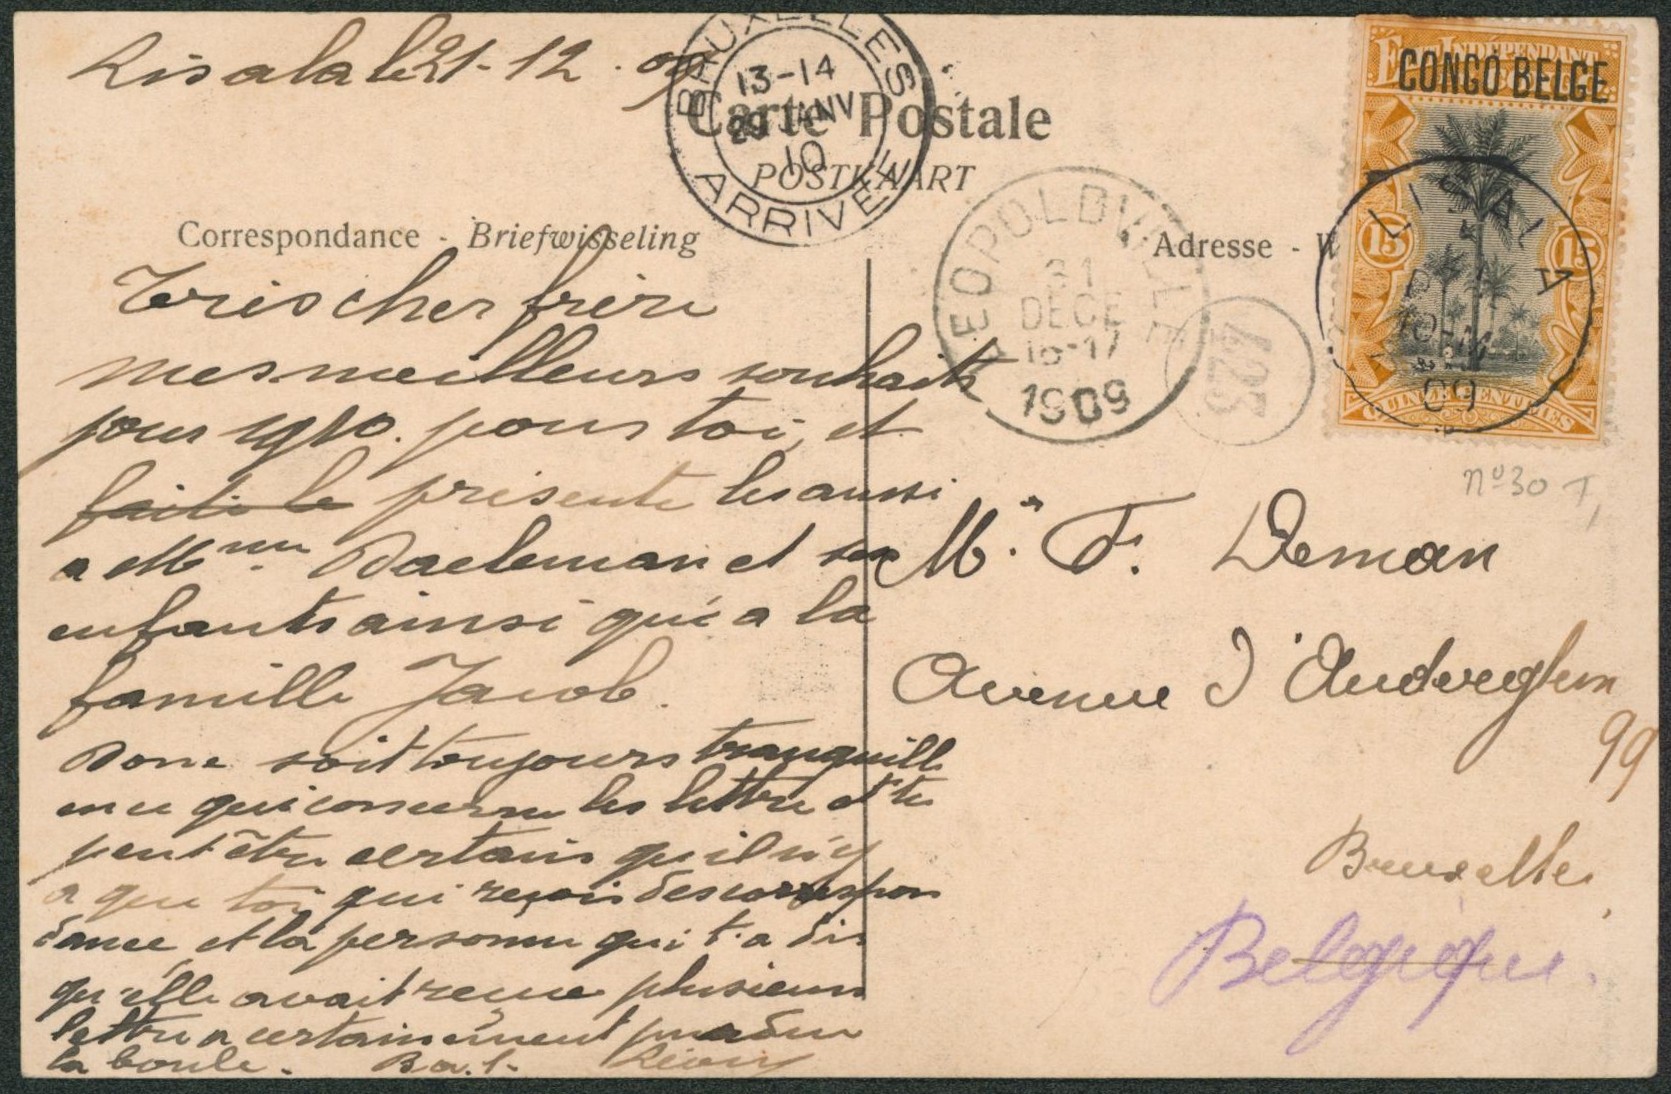 Lisala le 21-12-09
BRUXELLES
13-14
29 JANV
10
ARRIVEE
Carte Postale
POSTKAART
ÉTAT INDÉPENDANT
CONGO BELGE
15
15
LISALA
09
LEOPOLDVILLE
31
DECE
16-17
1909
423
Correspondance - Briefwisseling
Adresse - W
Très cher frère
mes meilleurs souhaits
pour 1910. pour toi, et
faite le présente les aussi
a Mme Daeleman et ses
enfants ainsi qu'a la
famille Jacob.
Donc soit toujours tranquille
en ce qui concerne les lettre et tu
peut être certain qu'il n'y
a que toi qui reçois des correspon
dance et la personne qui t'a dis
qu'elle avait reçue plusieurs
lettre a certainement perdue
la boule. Léon
nº 30
Mr. F. Deman
Avenue d'Auderghem
99
Bruxelles
Belgique.